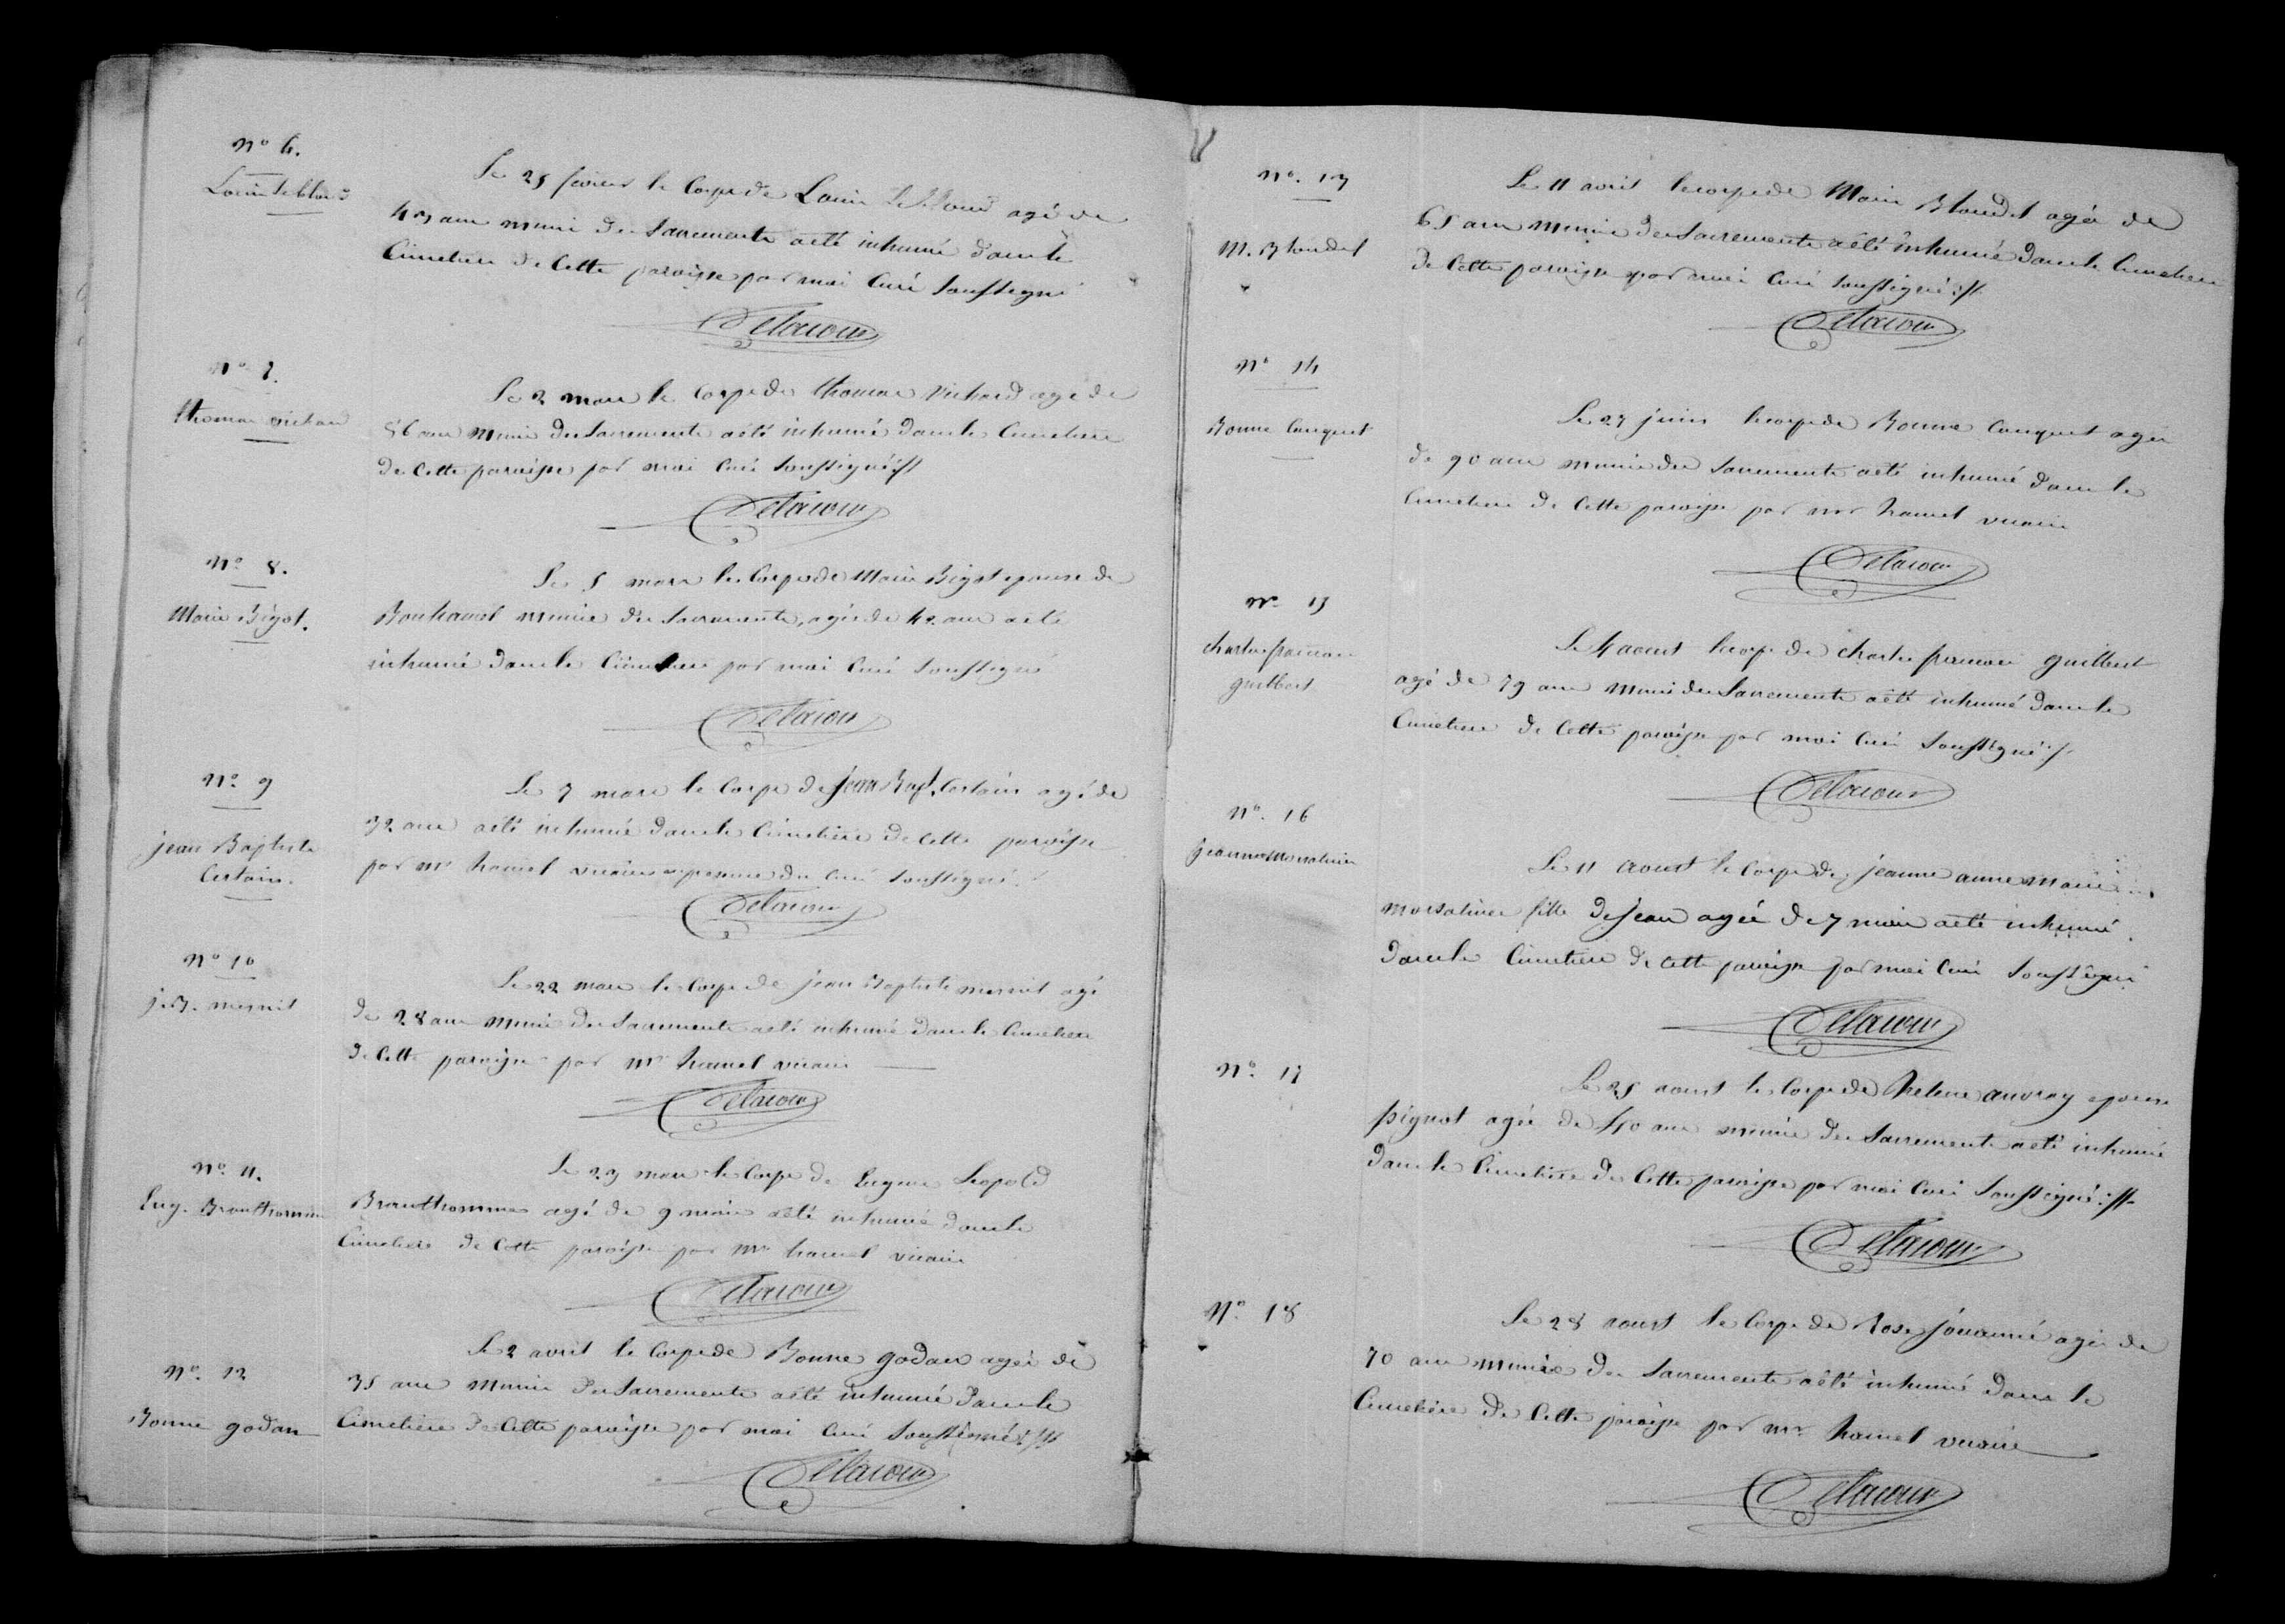 N° 6.
Louis Leblond
Le 25 fevrier le Corps de Louis Leblond agé de
43 ans muni des Sacrements aété inhumé dans le
Cimetiere de Cette paroisse par moi Curé soussigné
Delacour
N° 7.
thomas vichard
Le 2 mars le Corps de thomas vichard agé de
56 ans muni des Sacrements aété inhumé dans le Cimetiere
de Cette paroisse par moi Curé soussigné
Delacour
N° 8.
Marie Bigot.
Le 5 mars le Corps de Marie Bigot epouse de
Bonhamel munie des Sacrements, agée de 42 ans aété
inhumé dans le Cimetiere par moi Curé soussigné
Delacour
N° 9
jean Baptiste
Certain.
Le 7 mars le Corps de jean Bapt. Certain agé de
32 ans aété inhumé dans le Cimetière de Cette paroisse
par mr hamel vicaire en presence du Curé soussigné.
Delacour
N° 10
j.B. mesnil
Le 22 mars le Corps de jean Baptiste mesnil agé
de 28 ans muni des Sacrements aété inhumé dans le Cimetiere
de Cette paroisse par mr hamel vicaire
Delacour
N° 11.
Eug. Branthomme
Le 23 mars le Corps de Eugene Leopold
Branthomme agé de 9 mois aété inhumé dans le
Cimetiere de Cette paroisse par mr hamel vicaire
Delacour
N° 12
Bonne godan
Le 2 avril le Corps de Bonne godan agée de
35 ans munie des Sacrements aété inhumé dans le
Cimetière de Cette paroisse par moi Curé soussigné
Delacour
N° 13
M. Blondel
Le 11 avril le corps de Marie Blondel agée de
65 ans munie des Sacrements aété inhumé dans le Cimetiere
de Cette paroisse par moi Curé soussigné
Delacour
N° 14
Bonne Canquet
Le 27 juin le corps de Bonne Canquet agée
de 90 ans munie des Sacrements aété inhumé dans le
Cimetiere de Cette paroisse par mr hamel vicaire
Delacour
N° 15
charles francois
guilbert
Le 4 aout le corps de charles francois guilbert
agé de 79 ans muni des Sacrements aété inhumé dans le
Cimetiere de Cette paroisse par moi Curé soussigné
Delacour
N° 16
jeanne morsaline
Le 11 aout le Corps de jeanne anne marie
morsaline fille de jean agée de 7 mois aété inhumé
dans le Cimetiere de Cette paroisse par moi Curé soussigné
Delacour
N° 17
Le 25 aout le Corps de helene auvray epouse
pignot agée de 40 ans munie des Sacrements aété inhumé
dans le Cimetière de Cette paroisse par moi Curé soussigné
Delacour
N° 18
Le 28 aout le Corps de Rose jouanne agée de
70 ans munie des Sacrements aété inhumé dans le
Cimetière de Cette paroisse par mr hamel vicaire
Delacour